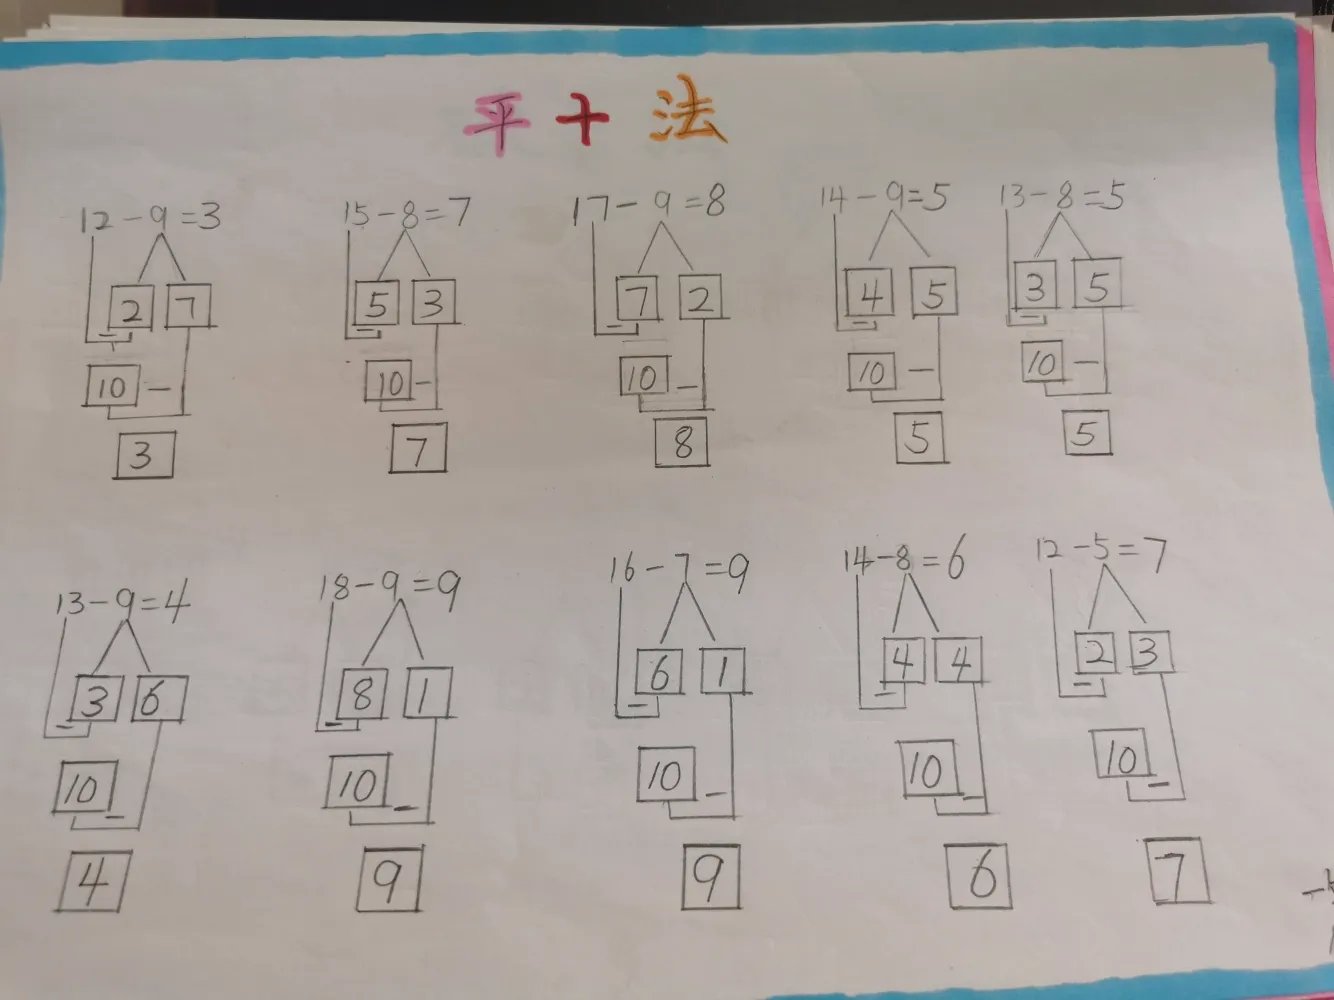 平十法
12-9=3 15-8=7 17-9=8 14-9=5 13-8=5
2 7 5 3 7 2 4 5 3 5
- - - - -
10 - 10 - 10 - 10 - 10 -
3 7 8 5 5
13-9=4 18-9=9 16-7=9 14-8=6 12-5=7
3 6 8 1 6 1 4 4 2 3
- - - - -
10 - 10 - 10 - 10 - 10 -
4 9 9 6 7